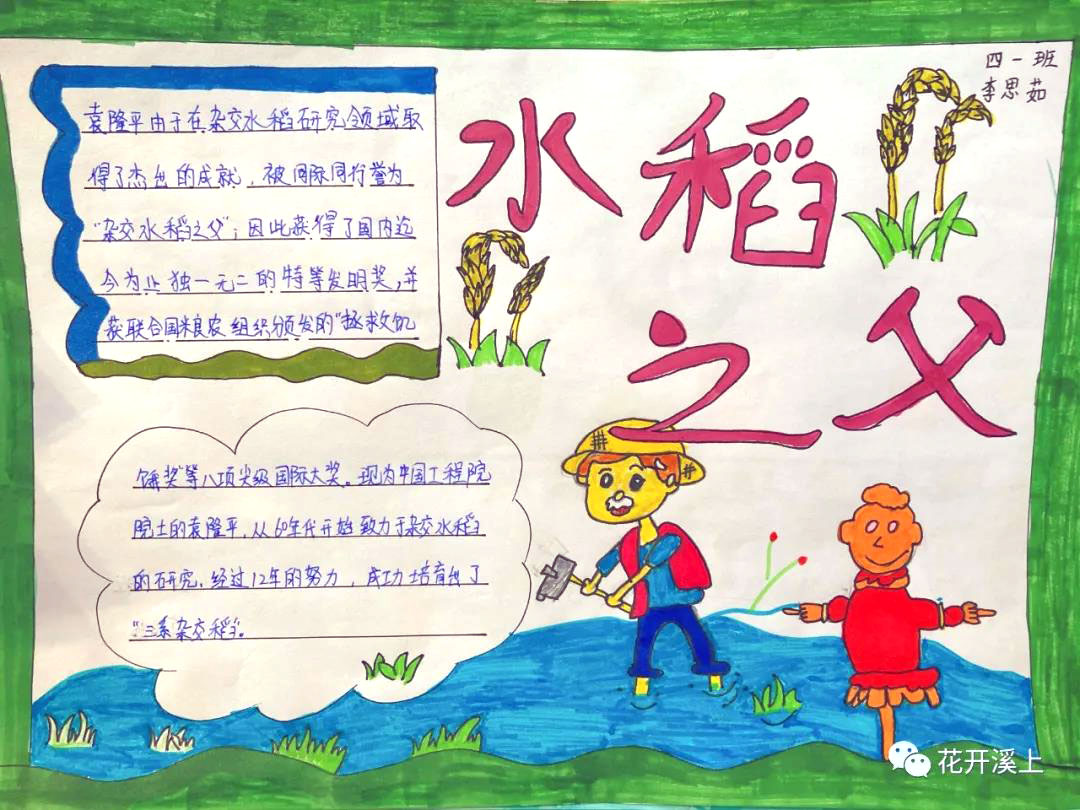 四一班
李思茹
水稻
之父
袁隆平由于在杂交水稻研究领域取
得了杰出的成就，被国际同行誉为
"杂交水稻之父"；因此获得了国内迄
今为止独一无二的特等发明奖，并
获联合国粮农组织颁发的"拯救饥
饿奖"等八项尖级国际大奖。现为中国工程院
院士的袁隆平，从60年代开始致力于杂交水稻
的研究，经过12年的努力，成功培育出了
"三系杂交稻"。
花开溪上